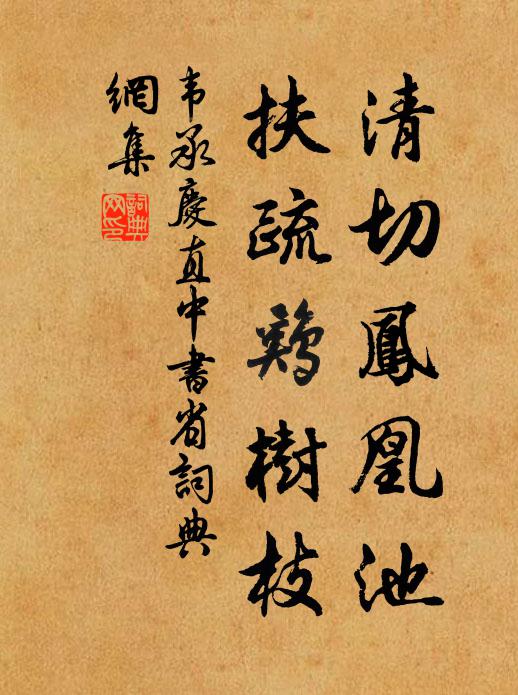 清切鳳凰池
扶疏鷄樹枝
韦承慶直中書省詞典
網集
詞典
网印